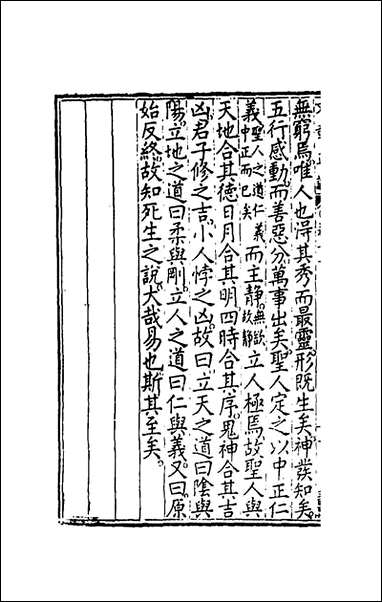 無窮焉唯人也得其秀而最靈形既生矣神發知矣
五行感動而善惡分萬事出矣聖人定之以中正仁
義聖人之道仁義中正而已矣而主靜無欲故靜立人極焉故聖人與
天地合其德日月合其明四時合其序鬼神合其吉
凶君子修之吉小人悖之凶故曰立天之道曰陰與
陽立地之道曰柔與剛立人之道曰仁與義又曰原
始反終故知死生之說大哉易也斯其至矣